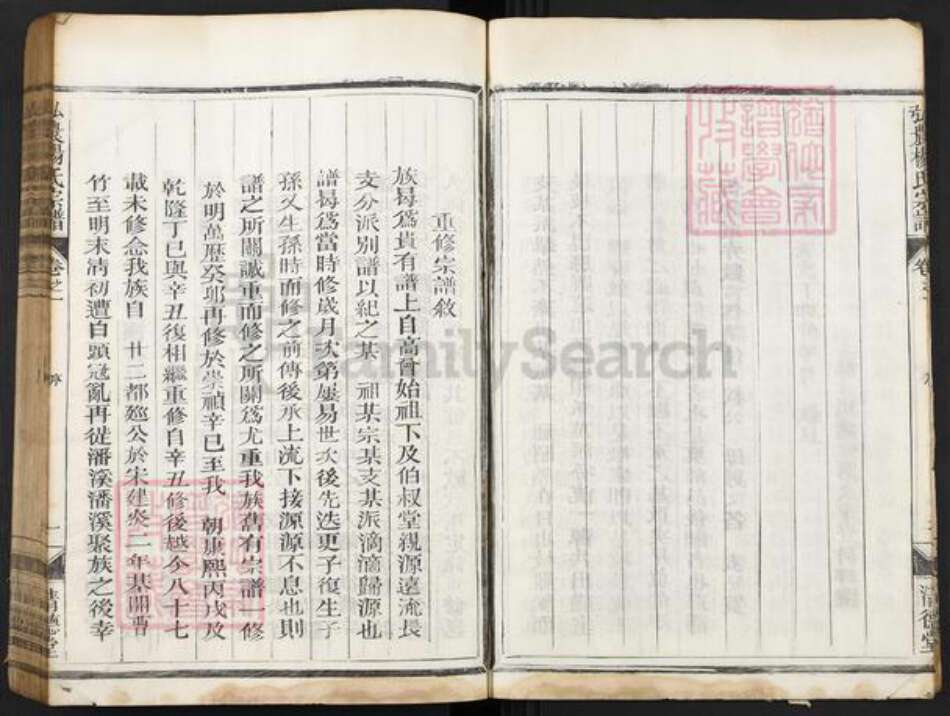 重修宗譜敘
族曷爲貴有譜上自高曾始祖下及伯叔堂親源遠流長
支分派別譜以紀之某 祖某宗某支某派滴滴歸源也
譜曷爲當時修歲月次第屢易世次後先迭更子復生子
孫又生孫時而修之前傳後承上流下接源源不息也則
譜之所關誠重而修之所關爲尤重我族舊有宗譜一修
於明萬歷癸卯再修於崇禎辛巳至我 朝康熙丙戌及
乾隆丁巳與辛丑復相繼重修自辛丑修後越今八十七
載未修念我族自 廿三都 公於宋建炎二年基開曹
竹至明末清初遭白頭寇亂再徙潘溪潘溪聚族之後幸
弘農楊氏宗譜 卷之一 一 清德堂
弘農楊氏宗譜 卷之一 清德堂
FamilySearch
譜學會
收藏